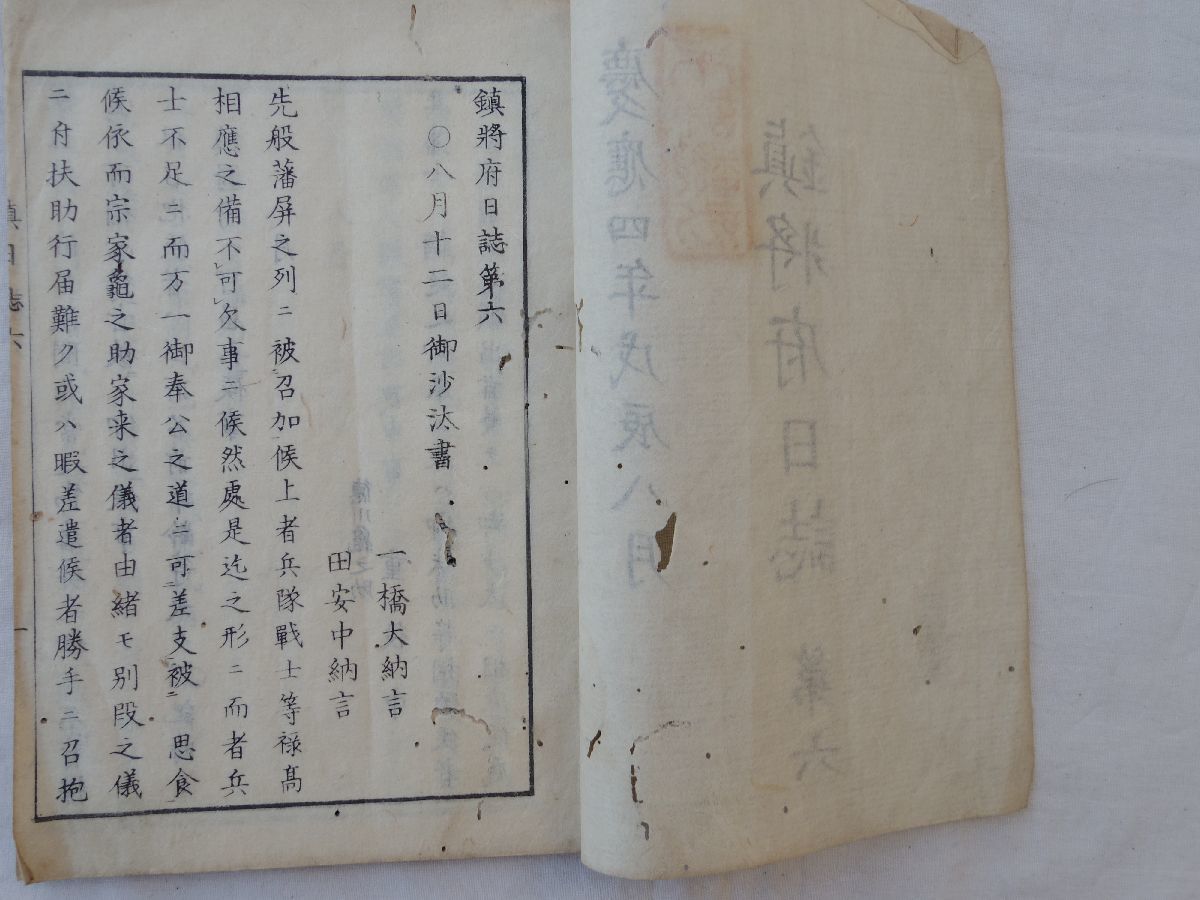 鎮將府日誌第六
〇八月十二日御沙汰書
一橋大納言
田安中納言
先般藩屏之列ニ被召加候上者兵隊戰士等祿髙
相應之備不可欠事ニ候然處是迄之形ニ而者兵
士不足ニ而万一御奉公之道ニ可差支被思食
候依而宗家龜之助家来之儀者由緒モ别段之儀
ニ付扶助行届難ク或ハ暇差遣候者勝手ニ召抱
慶應四年戊辰八月
鎮將府日誌 第六
德川龜之助